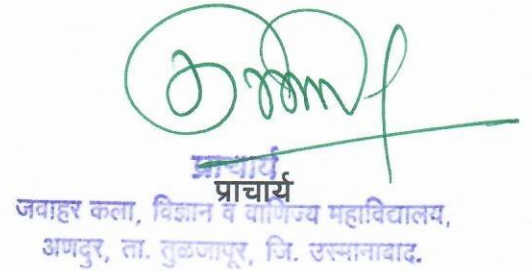 प्राचार्य
प्राचार्य
जवाहर कला, विज्ञान व वाणिज्य महाविद्यालय,
अणदुर, ता. तुळजापूर, जि. उस्मानाबाद.